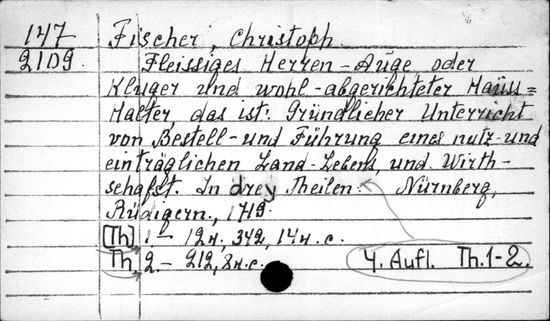 147
2109.
Fischer, Christoph.
Fleissiges Herren-Auge oder
Kluger und wohl-abgerichteter Hauss=
Halter, das ist: Gründlicher Unterricht
von Bestell- und Führung eines nutz- und
einträglichen Land-Lebens, und Wirth-
schafft. In drey Theilen. Nürnberg,
Rüdigern., 1719.
[Th] 1.- 12н., 342, 14н.с.
Th. 2.- 212, 8н.с.
4. Aufl. Th.1-2.